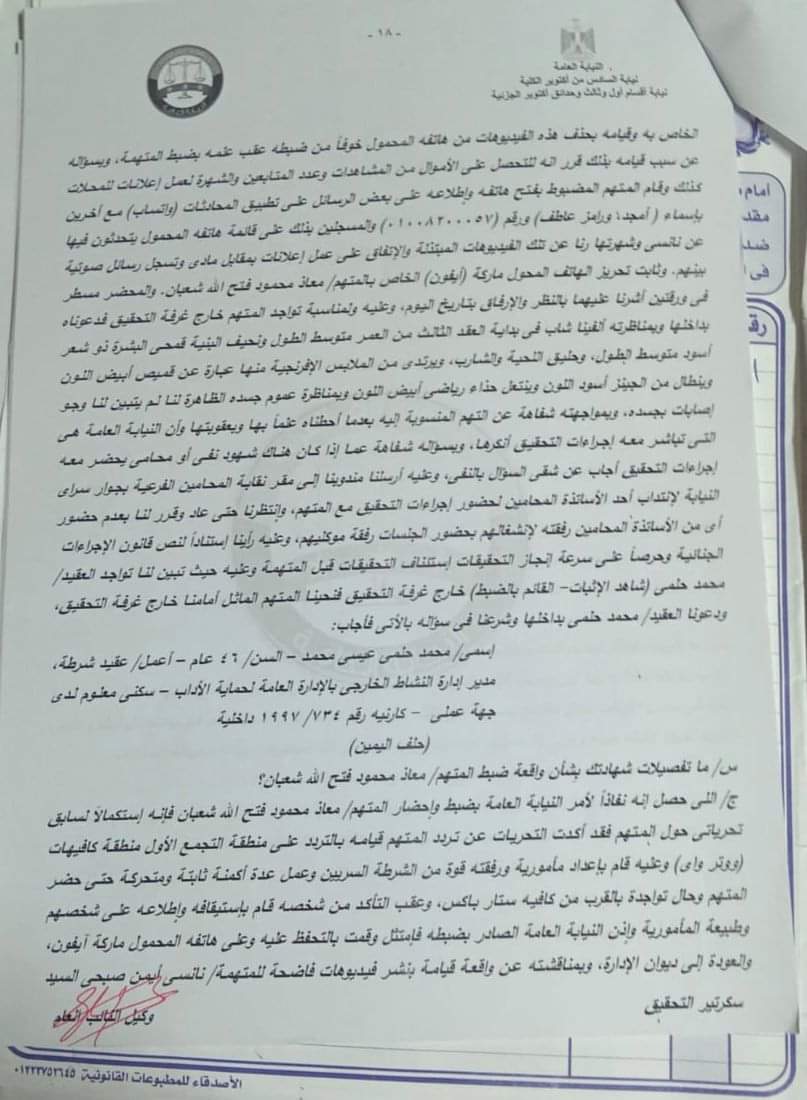 - ١٨ -
النيابة العامة
نيابة السادس من أكتوبر الكلية
نيابة أقسام أول وثالث وحدائق أكتوبر الجزئية
الخاص به وقيامه بحذف هذه الفيديوهات من هاتفه المحمول خوفاً من ضبطه عقب علمه بضبط المتهمة، وبسؤاله
عن سبب قيامه بذلك قرر انه للتحصل على الأموال من المشاهدات وعدد المتابعين والشهرة لعمل إعلانات للمحلات
كذلك وقام المتهم المضبوط بفتح هاتفه وإطلاعه على بعض الرسائل على تطبيق المحادثات (واتساب) مع أخرين
بإسماء ( أمجد، ورامز عاطف) ورقم (٠١٠٠٨٢٠٠٠٥٧) والمسجلين بذلك على قائمة هاتفه المحمول يتحدثون فيها
عن نانسى وشهرتها رنا عن تلك الفيديوهات المبتذلة والإتفاق على عمل إعلانات بمقابل مادى وتسجل رسائل صوتية
بينهم. وثابت تحريز الهاتف المحول ماركة (أيفون) الخاص بالمتهم/ معاذ محمود فتح الله شعبان. والمحضر مسطر
فى ورقتين أشرنا عليهما بالنظر والإرفاق بتاريخ اليوم، وعليه ولمناسبة تواجد المتهم خارج غرفة التحقيق فدعوناه
بداخلها وبمناظرته ألفينا شاب فى بداية العقد الثالث من العمر متوسط الطول ونحيف البنية قمحى البشرة ذو شعر
أسود متوسط الطول، وحليق اللحية والشارب، ويرتدى من الملابس الإفرنجية منها عبارة عن قميص أبيض اللون
وبنطال من الجينز أسود اللون وينتعل حذاء رياضى أبيض اللون وبمناظرة عموم جسده الظاهرة لنا لم يتبين لنا وجو
إصابات بجسده، وبمواجهته شفاهة عن التهم المنسوبة إليه بعدما أحطناه علماً بها وبعقوبتها وأن النيابة العامة هى
التى تباشر معه إجراءات التحقيق أنكرها، وبسؤاله شفاهة عما إذا كان هناك شهود نفى أو محامى يحضر معه
إجراءات التحقيق أجاب عن شقى السؤال بالنفى، وعليه أرسلنا مندوبنا إلى مقر نقابة المحامين الفرعية بجوار سراى
النيابة لإنتداب أحد الأساتذة المحامين لحضور إجراءات التحقيق مع المتهم، وإنتظرنا حتى عاد وقرر لنا بعدم حضور
أى من الأساتذة المحامين رفقته لإنشغالهم بحضور الجلسات رفقة موكليهم، وعليه رأينا إستناداً لنص قانون الإجراءات
الجنائية وحرصاً على سرعة إنجاز التحقيقات إستئناف التحقيقات قبل المتهمة وعليه حيث تبين لنا تواجد العقيد/
محمد حلمى (شاهد الإثبات- القائم بالضبط) خارج غرفة التحقيق فنحينا المتهم الماثل أمامنا خارج غرفة التحقيق،
ودعونا العقيد/ محمد حلمى بداخلها وشرعنا فى سؤاله بالأتى فأجاب:
إسمى/ محمد حلمى عيسى محمد - السن/ ٤٦ عام - أعمل/ عقيد شرطة،
مدير إدارة النشاط الخارجى بالإدارة العامة لحماية الأداب - سكنى معلوم لدى
جهة عملى - كارنيه رقم ٧٣٤/ ١٩٩٧ داخلية
(حلف اليمين)
س/ ما تفصيلات شهادتك بشأن واقعة ضبط المتهم/ معاذ محمود فتح الله شعبان؟
ج/ اللى حصل إنه نفاذاً لأمر النيابة العامة بضبط وإحضار المتهم/ معاذ محمود فتح الله شعبان فإنه إستكمالاً لسابق
تحرياتى حول المتهم فقد أكدت التحريات عن تردد المتهم قيامه بالتردد على منطقة التجمع الأول منطقة كافيهات
(ووتر واى) وعليه قام بإعداد مأمورية ورفقته قوة من الشرطة السريين وعمل عدة أكمنة ثابتة ومتحركة حتى حضر
المتهم وحال تواجدة بالقرب من كافيه ستار باكس، وعقب التأكد من شخصه قام بإستيقافه وإطلاعه على شخصهم
وطبيعة المأمورية وإذن النيابة العامة الصادر بضبطه فإمتثل وقمت بالتحفظ عليه وعلى هاتفه المحمول ماركة آيفون،
والعودة إلى ديوان الإدارة، وبمناقشته عن واقعة قيامة بنشر فيديوهات فاضحة للمتهمة/ نانسى أيمن صبحى السيد
سكرتير التحقيق
وكيل النائب العام
امام
مقد
ضد
فى ا
رق
الأصدقاء للمطبوعات القانونية ٠١٢٢٣٧٥٢٦٤٥